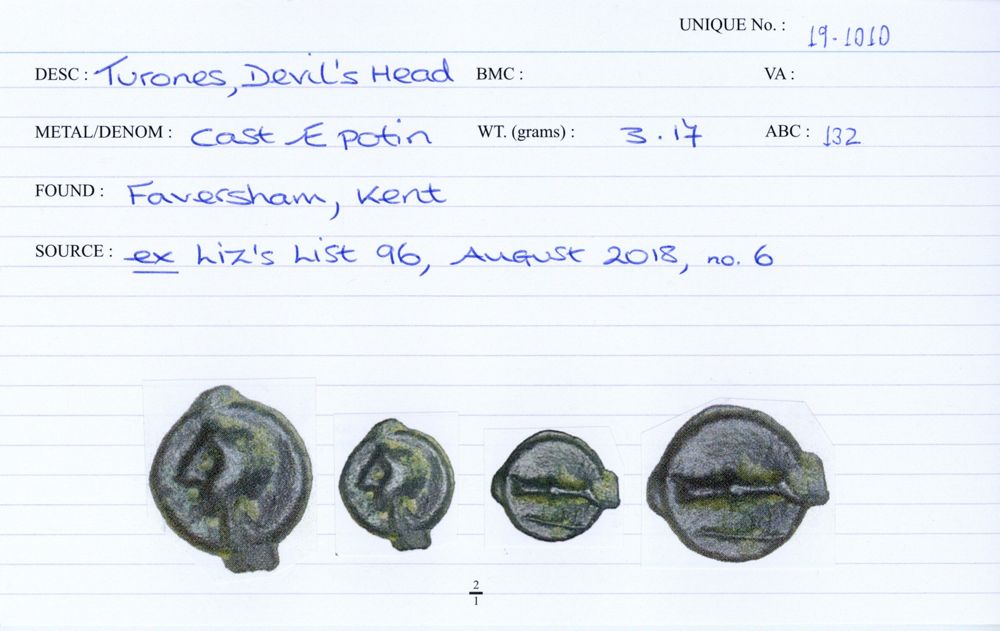 UNIQUE No. : 19-1010
DESC : Turones, Devil's Head BMC : VA :
METAL/DENOM : Cast Æ potin WT. (grams) : 3.17 ABC : 132
FOUND : Faversham, Kent
SOURCE : ex Liz's List 96, August 2018, no. 6
2
1